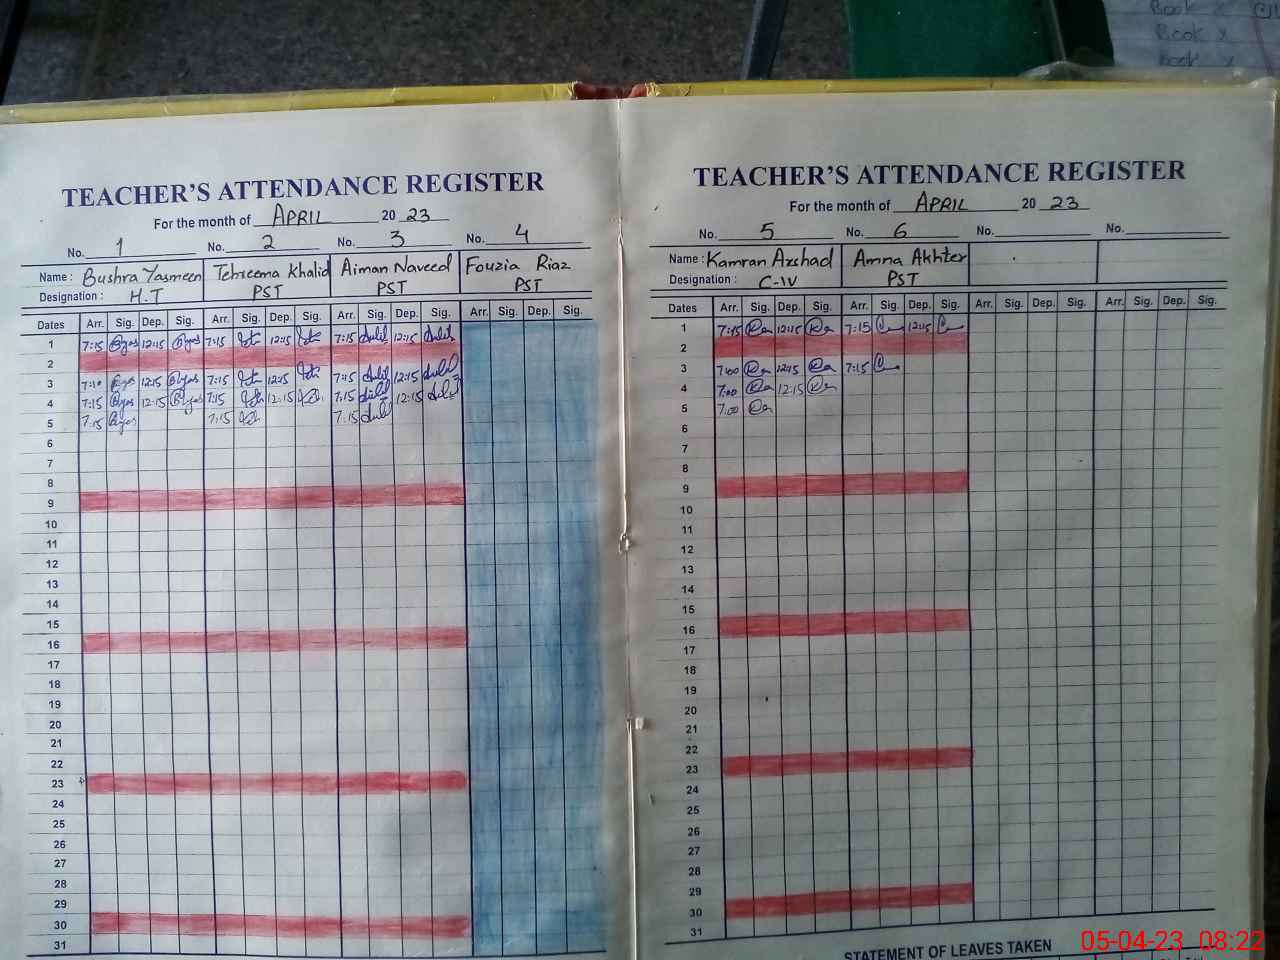 Book x
Book x
Book x
TEACHER'S ATTENDANCE REGISTER
For the month of APRIL 20 23
No. 1 No. 2 No. 3 No. 4
Name : Bushra Yasmeen Tehreema Khalid Aiman Naveed Fouzia Riaz
Designation : H.T PST PST PST
Dates Arr. Sig. Dep. Sig. Arr. Sig. Dep. Sig. Arr. Sig. Dep. Sig. Arr. Sig. Dep. Sig.
1 7:15 12:15 7:15 12:15 7:15 12:15
2
3 7:10 12:15 7:15 12:15 7:15 12:15
4 7:15 12:15 7:15 12:15 7:15 12:15
5 7:15 7:15 7:15
6
7
8
9
10
11
12
13
14
15
16
17
18
19
20
21
22
23
24
25
26
27
28
29
30
31
TEACHER'S ATTENDANCE REGISTER
For the month of APRIL 20 23
No. 5 No. 6 No. No.
Name : Kamran Arshad Amna Akhter
Designation : C-IV PST
Dates Arr. Sig. Dep. Sig. Arr. Sig. Dep. Sig. Arr. Sig. Dep. Sig. Arr. Sig. Dep. Sig.
1 12:15 7:15 12:15
2
3 7:00 12:15 7:15
4 7:00 12:15
5 7:00
6
7
8
9
10
11
12
13
14
15
16
17
18
19
20
21
22
23
24
25
26
27
28
29
30
31
STATEMENT OF LEAVES TAKEN
05-04-23 08:22